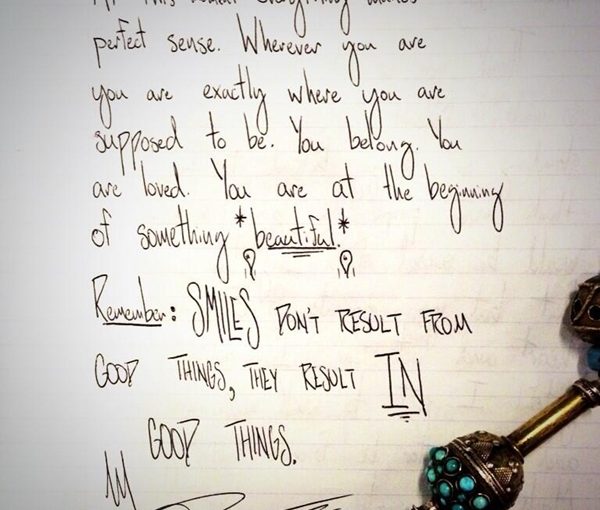 At this moment everything makes
perfect sense. Wherever you are
you are exactly where you are
supposed to be. You belong. You
are loved. You are at the beginning
of something *beautiful.*
Remember: SMILES DON'T RESULT FROM
GOOD THINGS, THEY RESULT IN
GOOD THINGS.